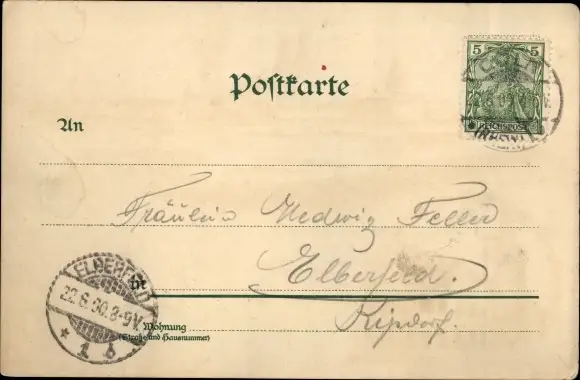 5 5
REICHSPOST
Postkarte
An
Fräulein Hedwig Feller
Elberfeld.
in
ELBERFELD
22.6.00.8-9V.
* 1 b
Wohnung
(Straße und Hausnummer)